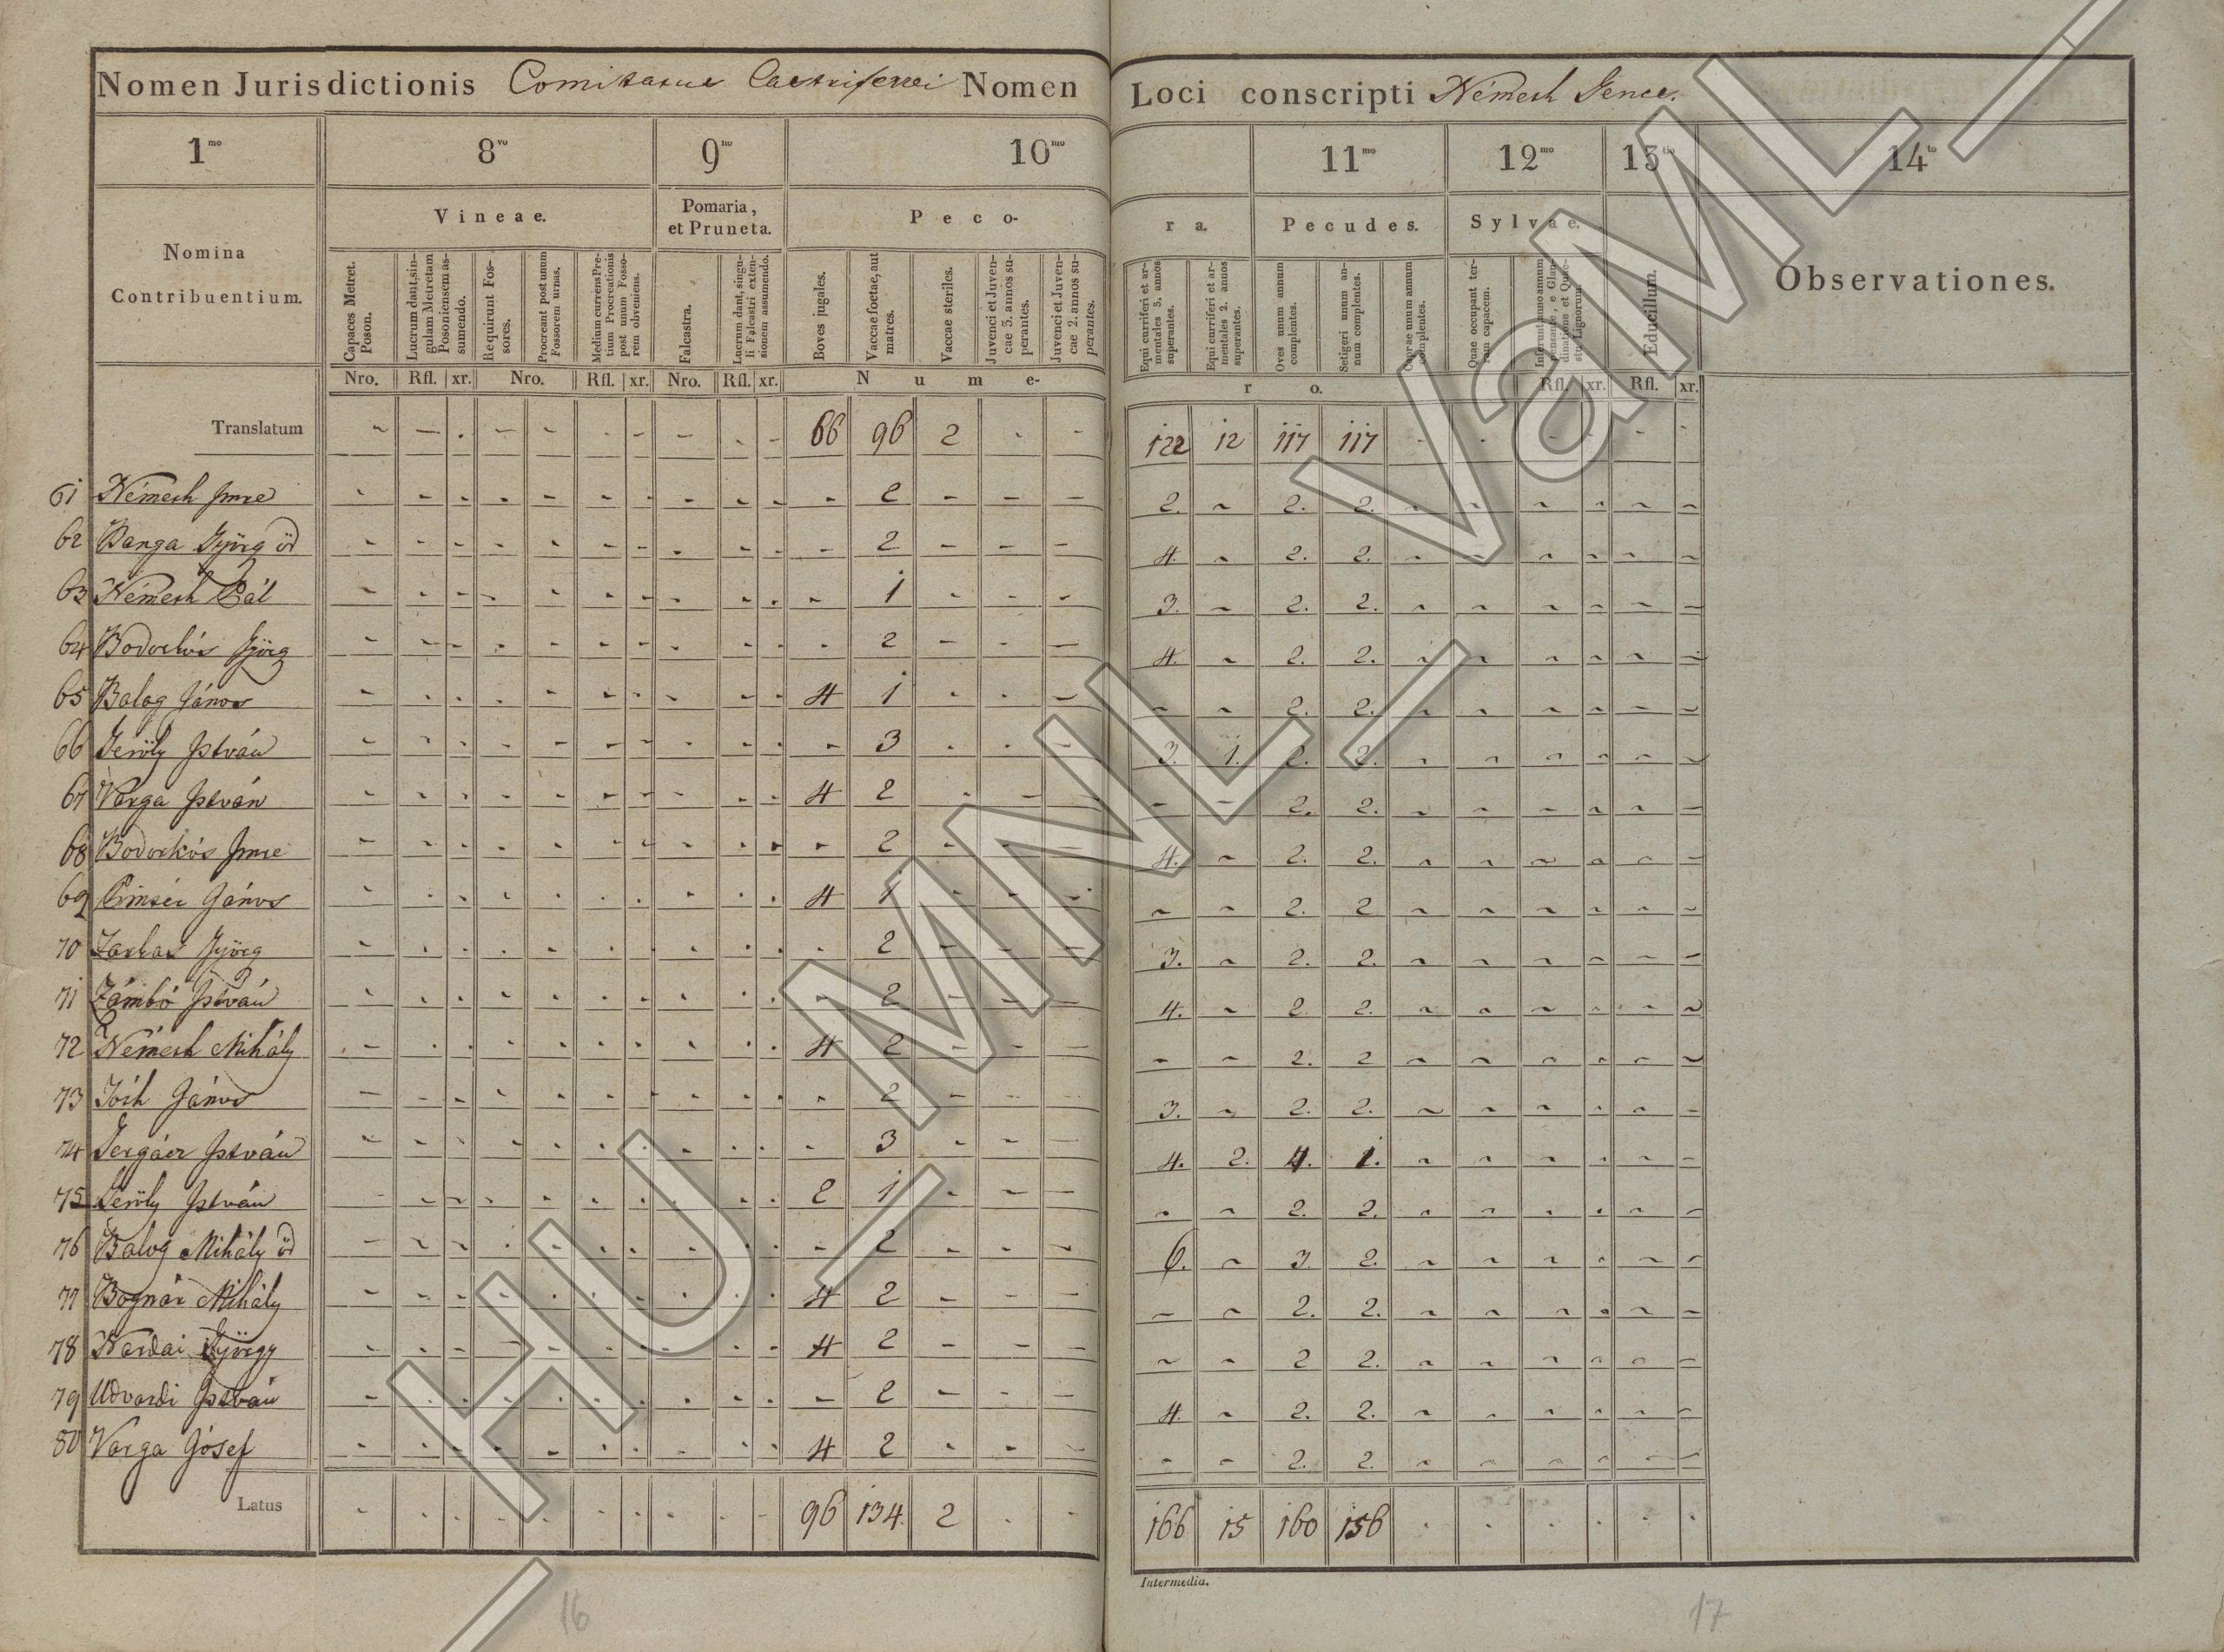 Nomen Jurisdictionis Comitatus Castriferrei Nomen Loci conscripti Németh Gencs.
1mo 8vo 9no 10mo 11mo 12mo 13tio 14to
Nomina Contribuentium.
Vineae.
Pomaria, et Pruneta.
Peco-ra.
Pecudes.
Sylvae.
Observationes.
Capaces Metret. Poson.
Lucrum dant, singulam Metretam Posoniensem assumendo.
Requirunt Fossores.
Procreant post unum Fossorem urnas.
Medium currens Pretium Procreationis post unum Fossorem obveniens.
Falcastra.
Lucrum dant, singuli Falcastri extensionem assumendo.
Boves jugales.
Vaccae foetae, aut matres.
Vaccae steriles.
Juvenci et Juvencae 3. annos superantes.
Juvenci et Juvencae 2. annos superantes.
Equi curriferi et armentales 3. annos superantes.
Equi curriferi et armentales 2. annos superantes.
Oves unum annum complentes.
Setigeri unum annum complentes.
Caprae unum annum complentes.
Quae occupant terram capacem.
Educillum.
Nro. Rfl. xr. Nro. Rfl. xr. Nro. Rfl. xr. Nume-ro. Rfl. xr. Rfl. xr.
Translatum 66 96 2 - - 122 12 117 117
61 Németh Imre - 2 - - - 2. - 2. 2.
62 Varga Györg öd - 2 - - - 4. - 2. 2.
63 Németh Pál - 1 - - - 3. - 2. 2.
64 Györg - 2 - - - 4. - 2. 2.
65 Balog János 4 1 - - - - - 2. 2.
66 István - 3 - - - 3. 1. 2. 2.
67 Varga István 4 2 - - - - - 2. 2.
68 Imre - 2 - - - 4. - 2. 2.
69 János 4 1 - - - - - 2. 2
70 Györg - 2 - - - 3. - 2. 2.
71 Zámbó István - 2 - - - 4. - 2. 2.
72 Németh Mihály 4 2 - - - - - 2. 2
73 Tóth János - 2 - - - 3. - 2. 2.
74 István - 3 - - - 4. 2. 4. 1.
75 István 2 1 - - - - - 2. 2.
76 Balog Mihály öd - 2 - - - 6. - 3. 2.
77 Bognár Mihály 4 2 - - - - - 2. 2.
78 György 4 2 - - - - - 2 2.
79 Udvardi István - 2 - - - 4. - 2. 2.
80 Varga Jósef 4 2 - - - - - 2. 2.
Latus 96 134. 2 - - 166 15 160 156
Intermedia.
16
17
HU_MNL_VaML_